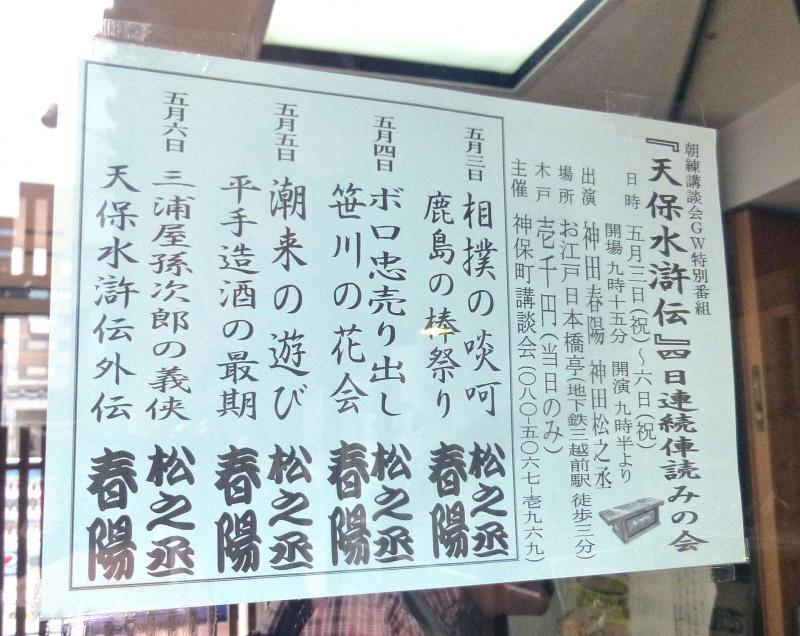 朝練講談会GW特別番組
『天保水滸伝』四日連続俥読みの会
日時 五月三日(祝)～六日(祝)
開場 九時十五分 開演 九時半より
出演 神田春陽 神田松之丞
場所 お江戸日本橋亭(地下鉄三越前駅 徒歩三分)
木戸 壱千円(当日のみ)
主催 神保町講談会(〇八〇-五〇六七-壱九六九)
五月三日 相撲の啖呵 松之丞
鹿島の棒祭り 春陽
五月四日 ボロ忠売り出し 松之丞
笹川の花会 春陽
五月五日 潮来の遊び 松之丞
平手造酒の最期 春陽
五月六日 三浦屋孫次郎の義侠 松之丞
天保水滸伝外伝 春陽